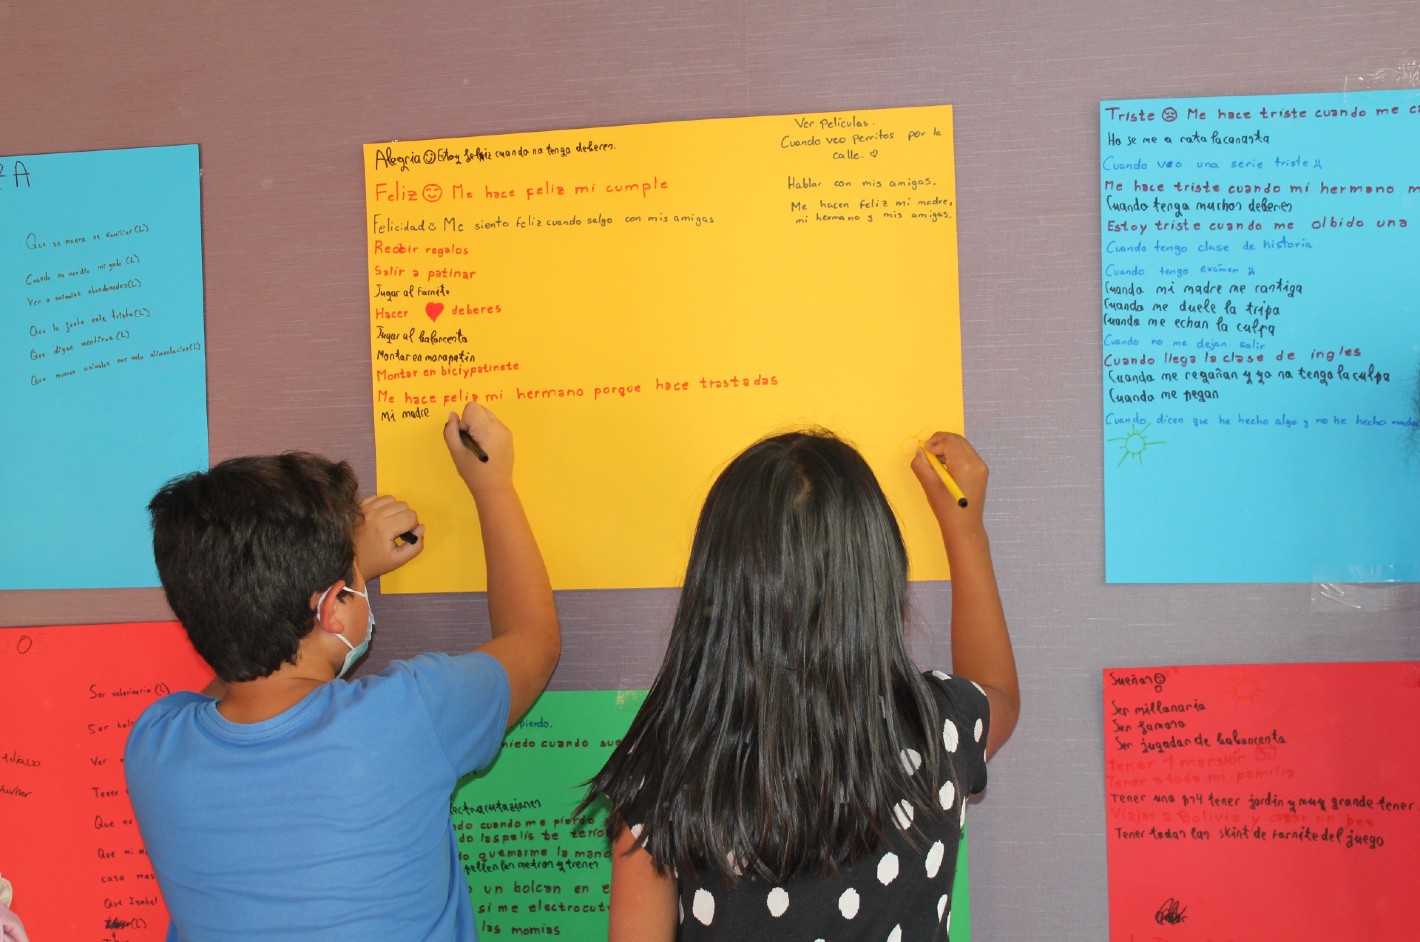 A
Que se muera un familiar(L)
Ver a animales abandonados(L)
Que la gente este triste(L)
Que digan mentiras(L)
Que mueran animales por mala alimentacion(L)
Alegria Estoy feliz cuando no tengo deberes.
Feliz Me hace feliz mi cumple
Felicidad Me siento feliz cuando salgo con mis amigas
Recibir regalos
Salir a patinar
Jugar al Farnite
Hacer deberes
Jugar al baloncesto
Montar en monopatin
Montar en bici y patinete
Me hace feliz mi hermano porque hace trastadas
Mi madre
Ver películas.
Cuando veo perritos por la
calle.
Hablar con mis amigas.
Me hacen feliz mi madre,
mi hermano y mis amigas.
Triste Me hace triste cuando me
No se me a rota la canasta
Cuando veo una serie triste
Me hace triste cuando mi hermano m
Cuando tenga muchos deberes
Estoy triste cuando me olbido una
Cuando tengo clase de historia
Cuando tengo exámen
Cuando mi madre me castiga
Cuando me duele la tripa
Cuando me echan la culpa
Cuando no me dejan salir
Cuando llega la clase de ingles
Cuando me regañan y yo no tengo la culpa
Cuando me pegan
Cuando dicen que he hecho algo y no he hecho nada
O
Ser veterinaria (L)
Ser
Ver
Tener
Que no
Que mi
casa mas
Que Isabel
(L)
pierdo.
miedo cuando sue
electrocutaziones
do cuando me pierdo
do las pelis de terro
quemarme la mano
metros y trenes
un bolcan en e
si me electrocut
las momias
Sueños
Ser millonario
Ser famoso
Ser jugador de baloncesto
tener 1 mansión
Tener a toda mi familia
Tener una ps4 tener jardin y muy grande tener
Viajar a Bolivia y
Tener todas las skint de farnite del juego